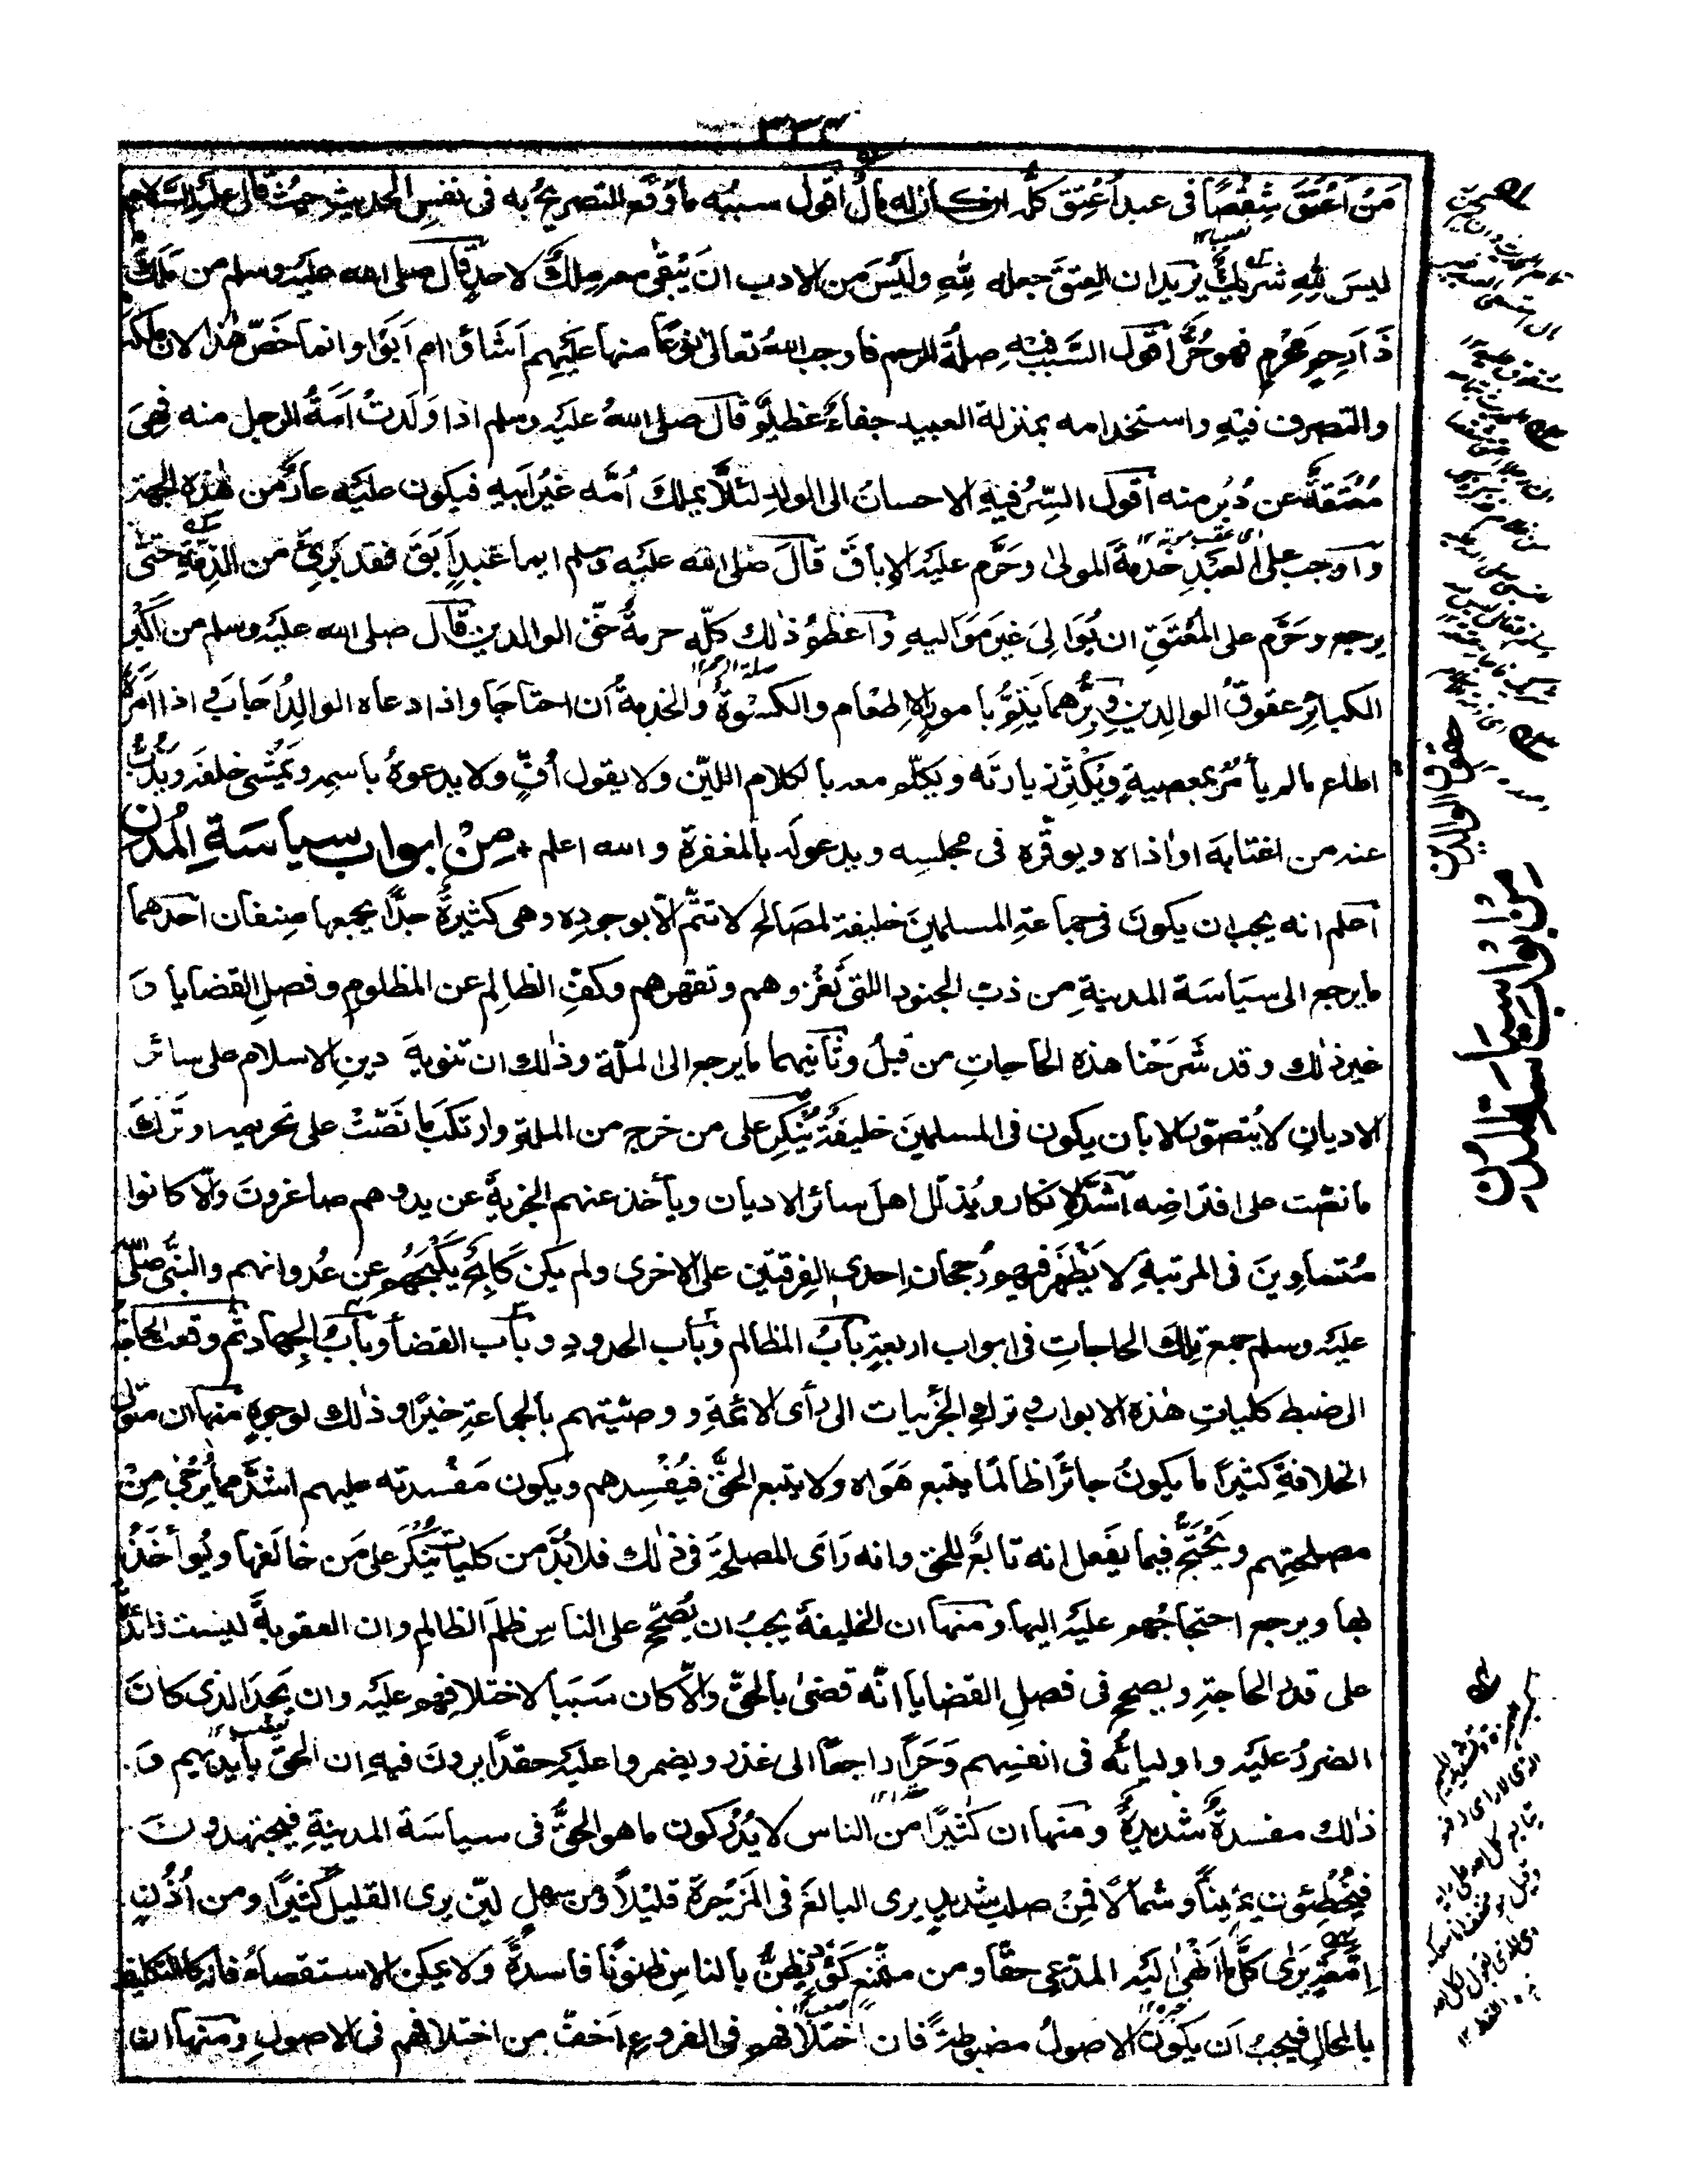 ٣٢٣
مَنْ اَعْتَقَ شِقْصًا فى عبد اُعْتِقَ كلّه ان كان له مال اقول سببه ما وقع التصريح به فى نفس الحديث حيث قال عليه السلام
ليسَ لِلّٰهِ شريك يريد ان العتق جعله لله وليسَ من الادب ان يُبْقى معه ملكٌ لاحد قال صلى الله عليه وسلم من ملك
ذَا رحم محرم فهو حُرٌّ اقول السَّبَب فيه صلة الرحم فاوجب الله تعالى نوعًا منها عليهم اَشَاؤا ام اَبَوْا وانما خَصّ هٰذا لان ملكه
والتصرف فيه واستخدامه بمنزلة العبيد جفاءٌ عظيم قال صلى الله عليه وسلم اذا وَلَدتْ اَمَةُ الرجل منه فهى
مُعْتَقةٌ عن دُبُرٍ منه اقول السِّر فيه الاحسان الى الولد لئلا يملك اُمَّه غيرُ ابيه فيكون عليه عارٌ من هٰذه الجهة
وآوجب على العبد خدمة المولىٰ وحَرَّم عليه الاباق قال صلى الله عليه وسلم ايما عبد اَبَقَ فقد بَرِئَ من الذمّة حتّى
يرجع وحَرَّم على المُعْتَقِ ان يُوَالِىَ غيرَ مَوَاليه واعظم ذٰلك كلّه حرمةً حَقّ الوالدين قال صلى الله عليه وسلم من اكبر
الكبائر عقوق الوالدين وبِرُّهما يَتِمُّ بامور الاطعام والكسوة والخدمة اِن احتاجَا واذا دعاه الوالدُ اَجَابَ واذا اَمَرَهُ
اطاع مالم يأمر بمعصيةٍ ويُكْثِر زيارتَه ويكلّم معه بالكلام الليّن ولا يقول اُفٍّ ولا يدعوهُ باسمه ويَمْشى خلفه ويذُبّ
عنه من اغتابهَ او اٰذاه ويوقّره فى مجلسِه ويدعو له بالمغفرةِ والله اعلم + مِنْ ابوابِ سِياسَةِ المُدُن
اعلم انه يجب ان يكونَ فى جماعةِ المسلمينَ خليفةٌ لمصَالح لا تتمّ الا بوجودِه وهى كثيرةٌ جدًّا يجمعها صِنفان احدهما
ما يرجع الى سيَاسَة المدينةِ من ذبّ الجنود اللتى تَغْزوهم وتقهرهم وكفّ الظالم عن المظلومِ وفصلِ القضايا وَ
غير ذٰلك وقد شَرَحْنا هذه الحاجاتِ من قبلُ وثانيهما ما يرجع الى الملّة وذٰلك ان تنويهَ دينِ الاسلام على سائر
الاديانِ لا يُتصوّر الا بان يكون فى المسلمينَ خليفةٌ يُنْكِر على من خرج من الملة وارتكبَ ما نَصَّتْ على تحريمه او تَرَكَ
ما نصّت على افتراضِه اشَدَّ الانكار ويُذلّل اهلَ سائر الاديان ويأخذ عنهم الجزيةَ عن يدٍ وهم صاغرونَ والّا كانوا
مُتساوِينَ فى المرتبةِ لا يَظْهَر فيهم رجحان اِحدى الفِرقتين على الاخرى ولم يكن كابِحٌ يَكْبَحُهم عن عُدوانهم والنبى صلّى الله
عليه وسلم جمع تلك الحاجاتِ فى ابواب اربعةٍ بابُ المظالم وباب الحدودِ وباب القضاء وبابُ الجهاد ثم وقعت الحاجة
الى ضبط كلياتِ هٰذه الابوابِ وترك الجزئيات الى رأى الائمةِ ووصيّتهم بالجماعةِ خيرًا وذٰلك لوجوهٍ منها ان متولّى
الخلافةِ كثيرًا ما يكونُ جائرًا ظالمًا يتبع هَوَاه ولا يتبع الحقّ فيُفْسِدهم ويكون مَفْسدته عليهم اشدَّ مما يُرْجٰى مِنْ
مصلحتهم ويَحْتَجّ فيما يفعل انه تابعٌ للحق وانه رَاَى المصلحةَ فى ذٰلك فلا بُدّ من كلياتٍ يُنْكَر على مَن خالَفها ويُؤاخَذُ
بها ويرجع احتجاجُهم عليه اليها ومنها ان الخليفةَ يجبُ ان يُصَحّح على الناسِ ظلمَ الظالمِ وان العقوبةَ ليست زائدةً
على قدر الحاجةِ ويصحح فى فصلِ القضايا انّه قضىٰ بالحقّ والّا كان سَبَبا لاختلافهم عليه وان يَجِدَ الذى كان
الضررُ عليه واوليائُه فى انفسِهم وَحَرًا راجعًا الى غدر ويضمروا عليه حقدًا يرونَ فيه ان الحقّ بايديهم وَ
ذٰلك مفسدةٌ شديدةٌ ومنها ان كثيرًا من الناس لا يُدْرِكون ما هو الحقُّ فى سياسَة المدينةِ فيجتهدونَ
فيُخْطِئون يمينًا وشمالًا فمِنْ صلبٍ شديدٍ يرى البالغَ فى المَزْجَرَةِ قليلاً ومن سهل ليّن يرى القليل كثيرًا ومن اُذُنٍ
اِمَّعَةٍ يَرٰى كلَّ ما اَنْهٰى اليه المدّعى حقًّا ومن ممتنعٍ كَؤُدٍ يظنُّ بالناسِ ظنونًا فاسدةً ولا يمكن الاستقصاءُ فانه كالتكليف
بالمحالِ فيجبُ اَن يكون الاصولُ مضبوطةً فان اختلافَهم فى الفروع اَخفّ من اختلافهم فى الاصولِ ومنها ان
حقوق الوالدين
من ابواب سياسة المدن